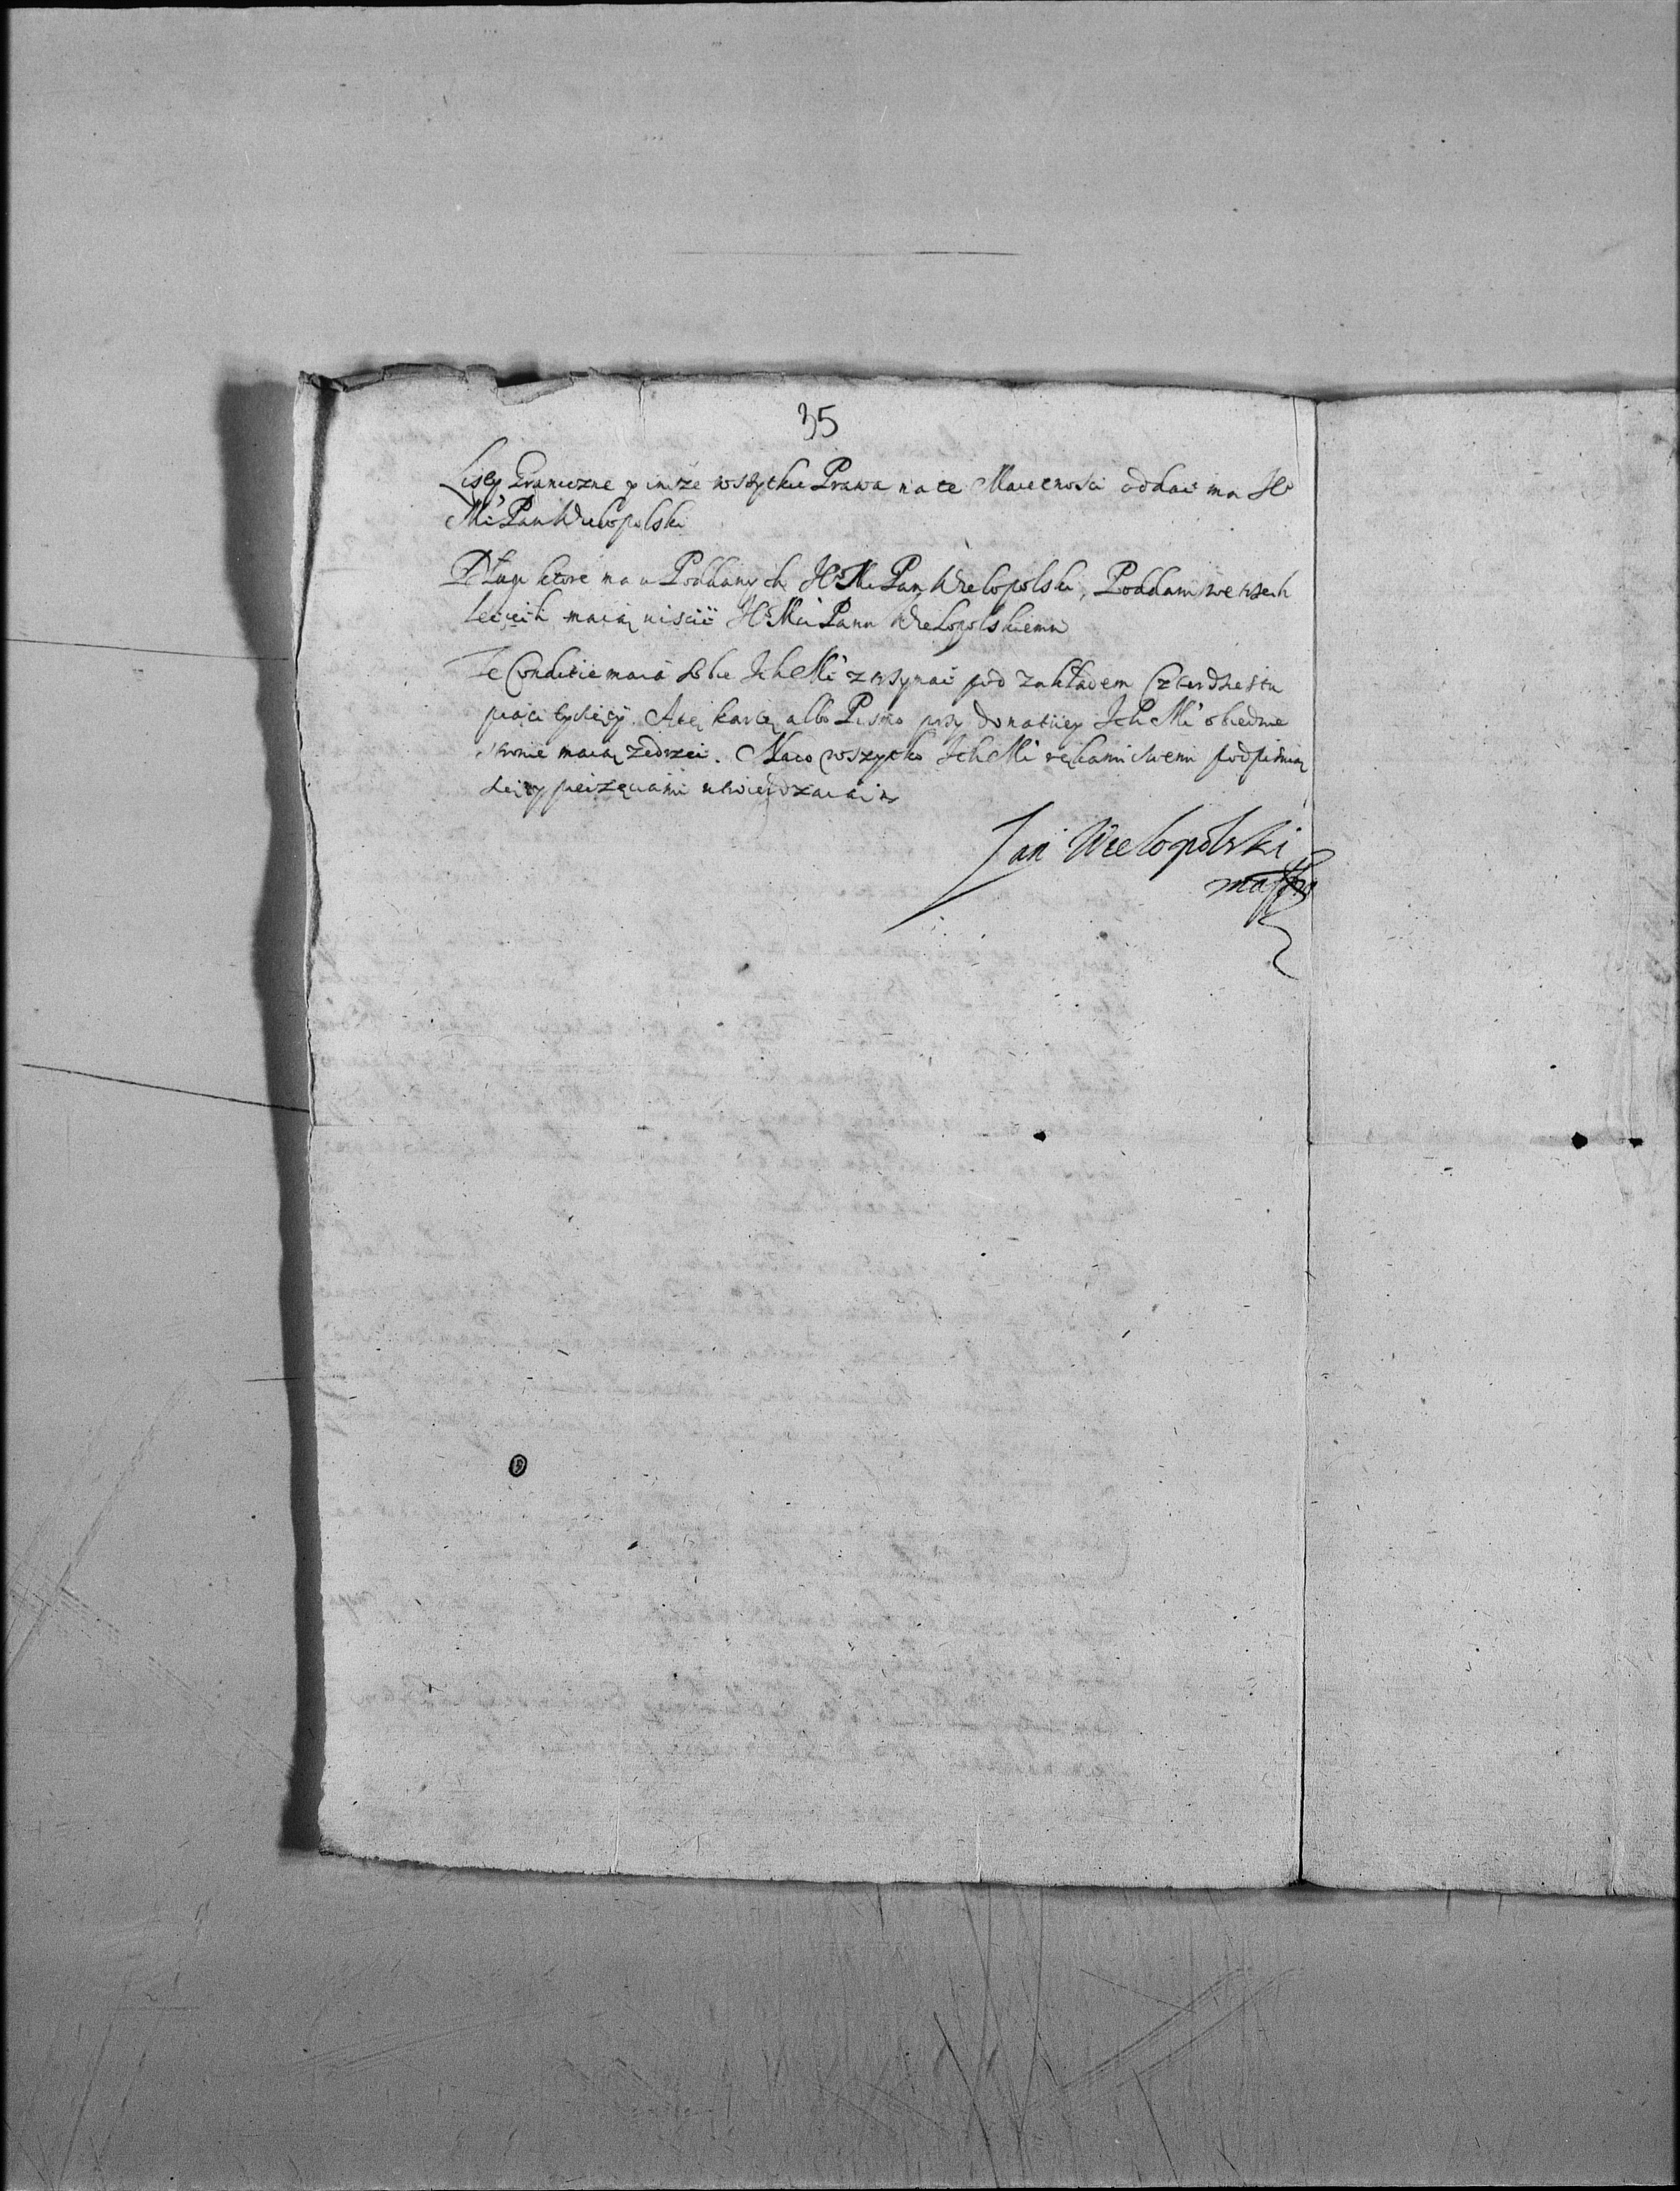 35
Listy Graniczne y insze wszytkie Prawa na te Maiętnosci oddać ma JeO
Mć Pan Wielopolski
Długi ktore ma u Poddanych Je Mć Pan Wielopolski, Poddani we trzech
leciech maią uiscić Je Mći Panu Wielopolskiemu
Te Conditie maią sobie Ich Mć ztrzymać pod zakładem Czterdziestu
piąci tysięcy. A tę kartę albo Pismo przy donatiiey Ich Mć obiedwie
stronie maią zedrzeć. Na co wszytko Ich Mć rękami swemi podpisuią
się y pieczęciami utwierdzaią
Jan Wielopolski
mapp